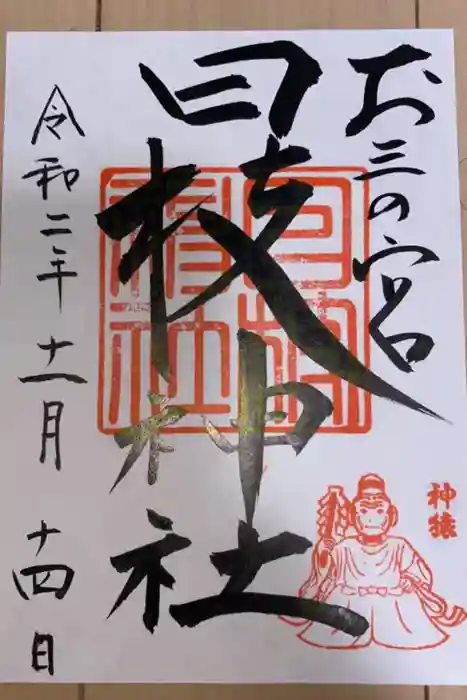 お三の宮
日枝神社
令和二年十一月十四日
日枝神社
神猿